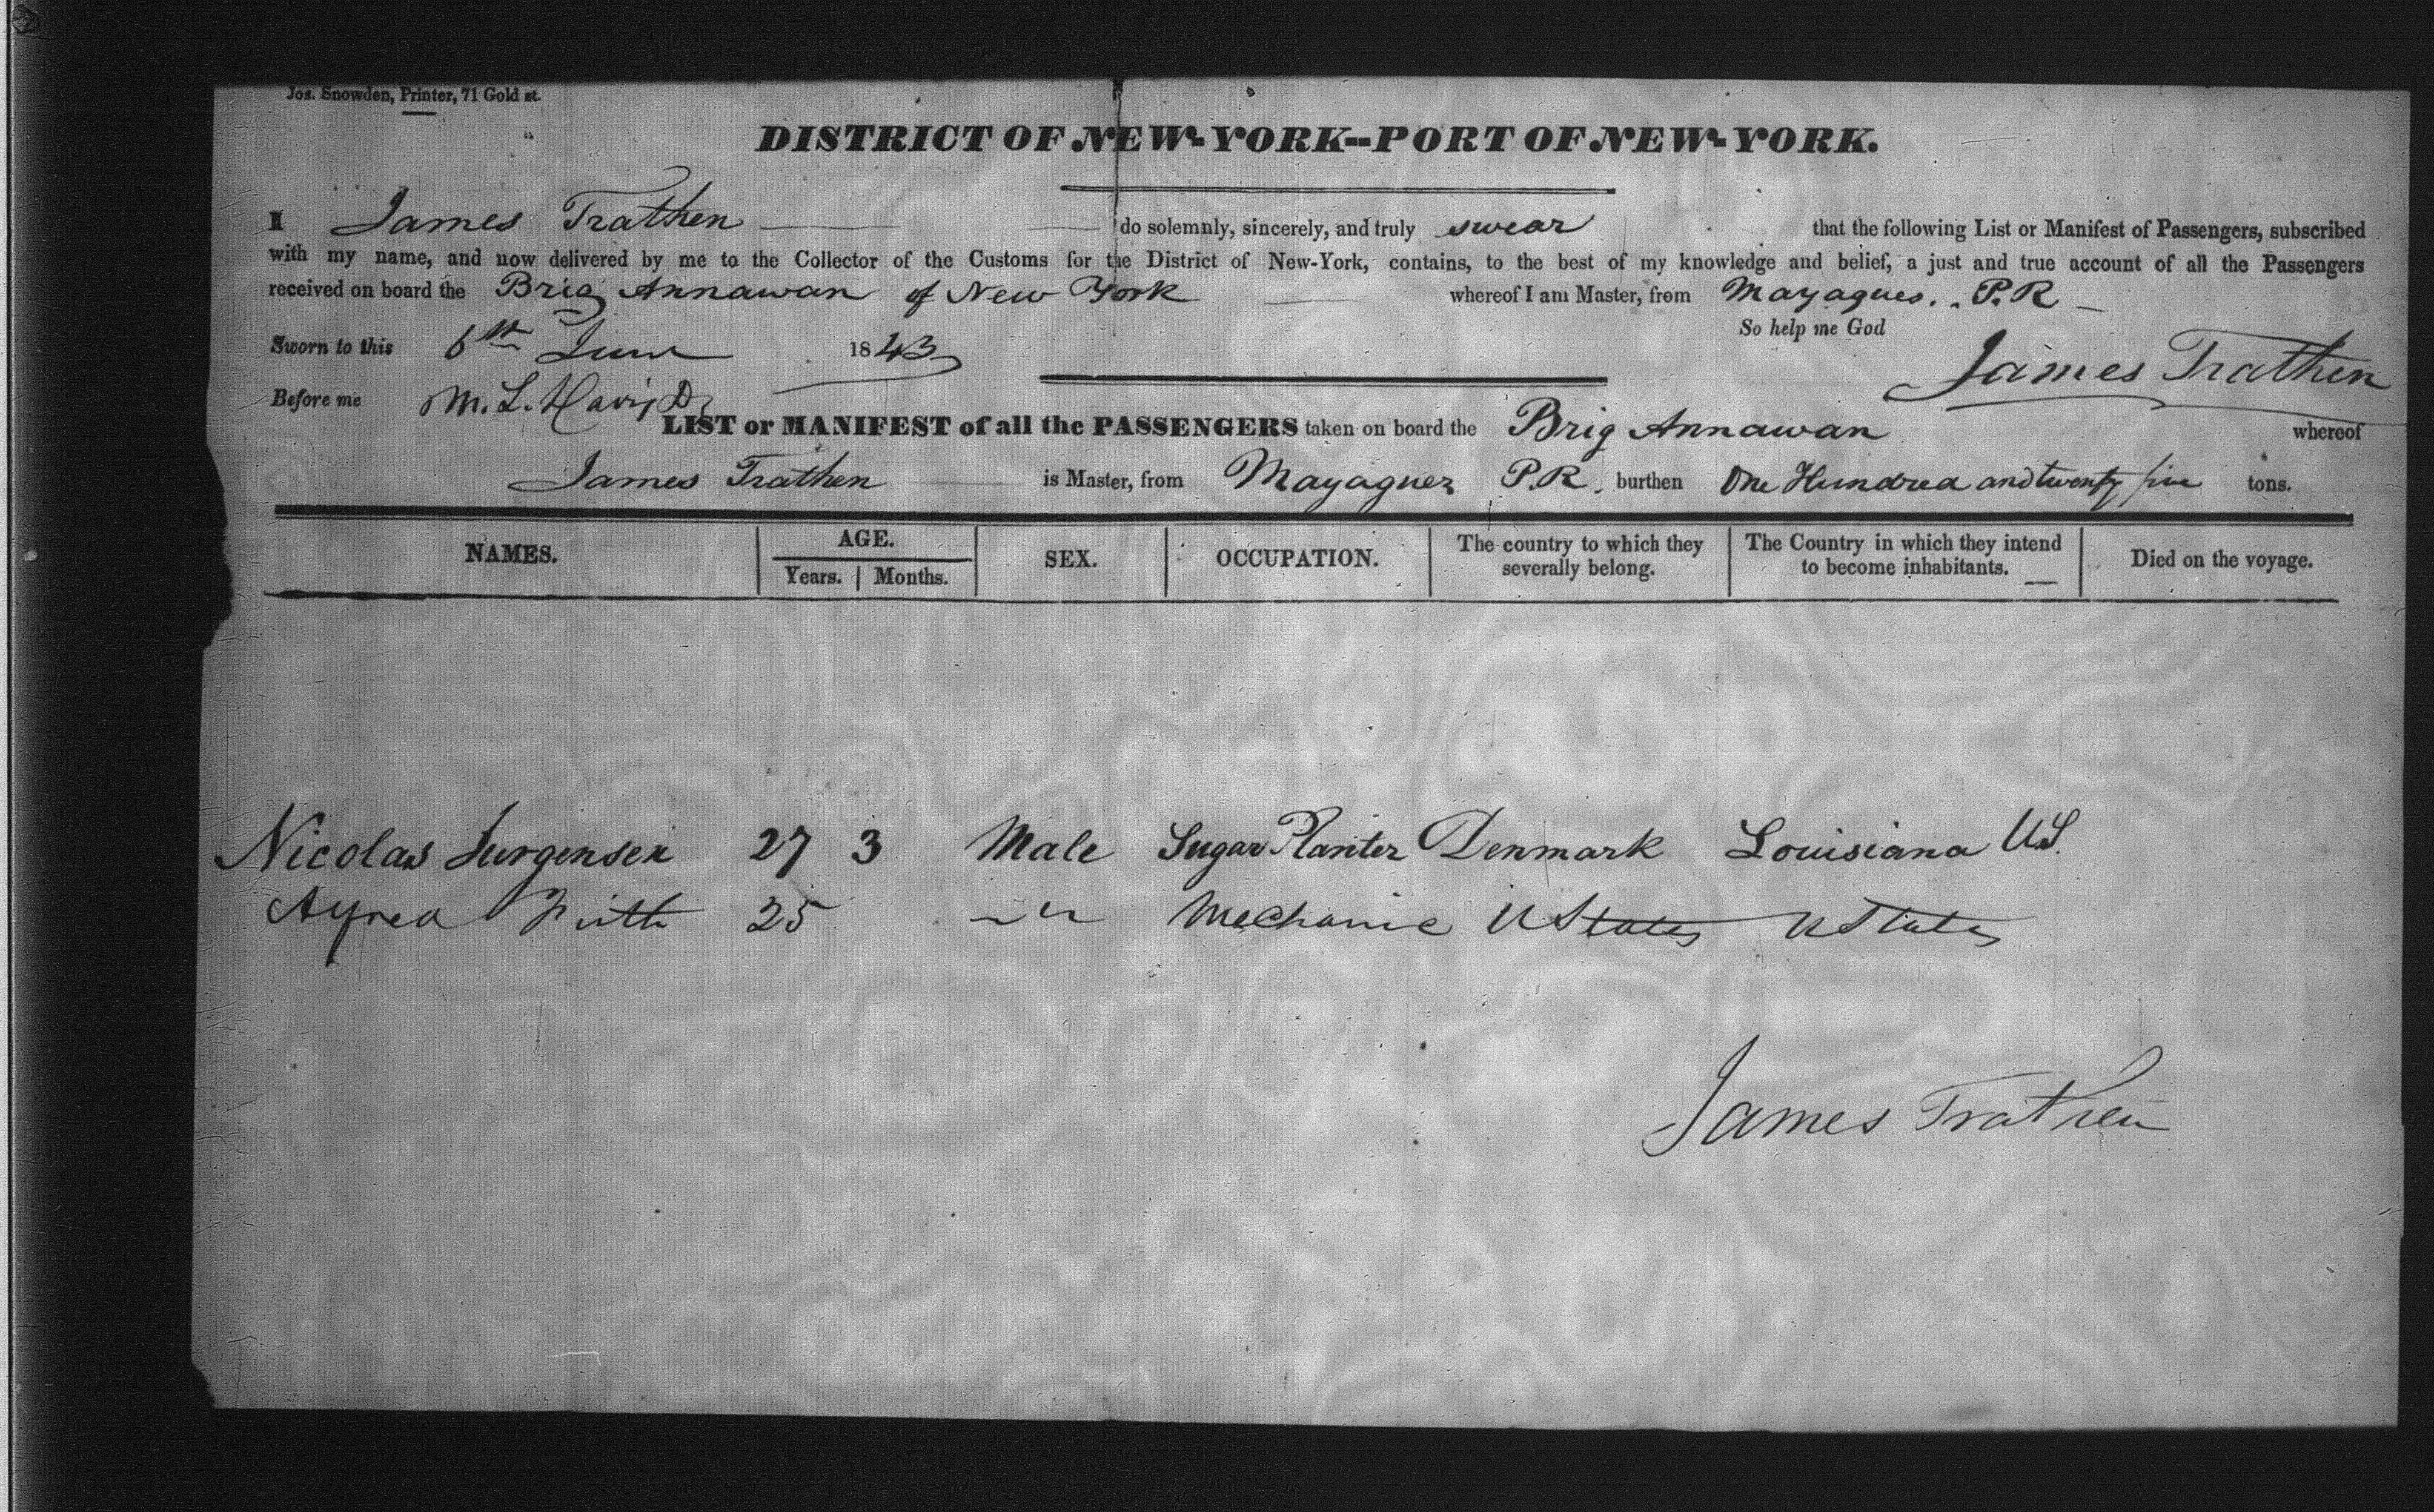 Jos. Snowden, Printer, 71 Gold st.
DISTRICT OF NEW-YORK--PORT OF NEW-YORK.
I James Trathen do solemnly, sincerely, and truly swear that the following List or Manifest of Passengers, subscribed
with my name, and now delivered by me to the Collector of the Customs for the District of New-York, contains, to the best of my knowledge and belief, a just and true account of all the Passengers
received on board the Brig Annawan of New York whereof I am Master, from Mayagues. P.R
So help me God
Sworn to this 6th June 1843
James Trathen
Before me M. L.
LIST or MANIFEST of all the PASSENGERS taken on board the Brig Annawan whereof
James Trathen is Master, from Mayaguez P.R. burthen One Hundred and twenty five tons.
NAMES. AGE. SEX. OCCUPATION. The country to which they severally belong. The Country in which they intend to become inhabitants. Died on the voyage.
Years. Months.
Nicolas Jurgensen 27 3 Male Sugar Planter Denmark Louisiana US.
25 " " Mechanic U States U States
James Trathen